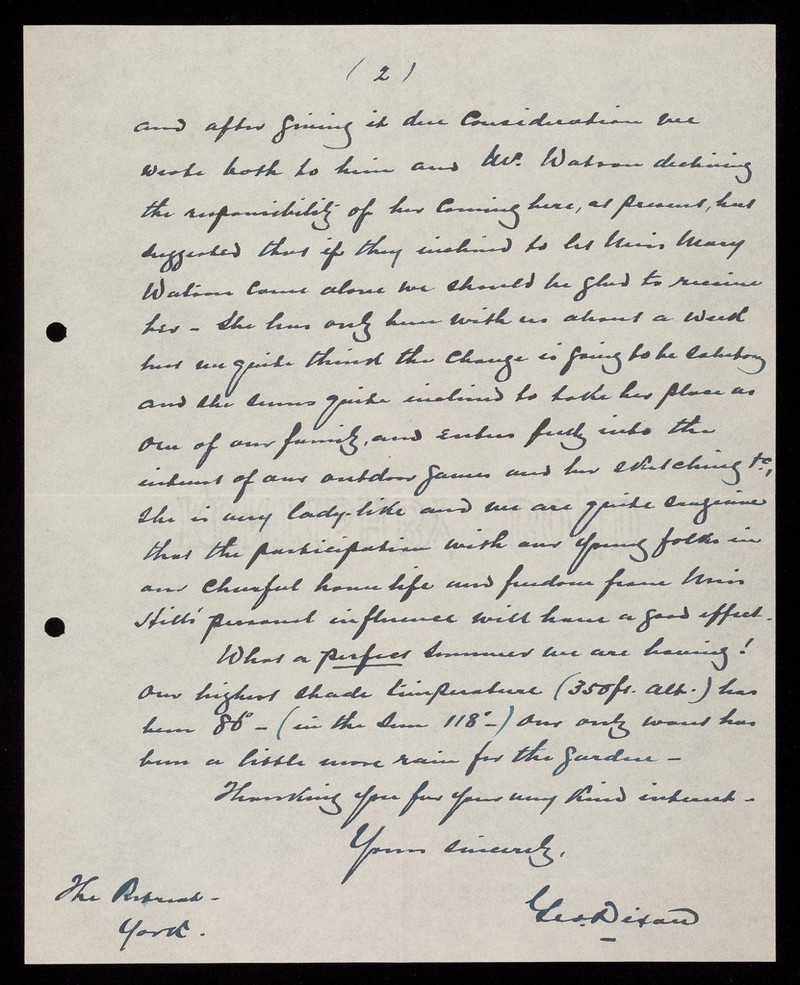 ( 2 )
and after giving it due Consideration we
wrote both to him and Mr. Watson declining
the responsibility of her Coming here, at present, but
suggested that if they inclined to let Miss Mary
Watson Come alone we should be glad to receive
her - She has only been with us about a week
but we quite think the Change is going to be salutary
and she seems quite inclined to take her place as
one of our family, and enters fully into the
interest of our outdoor games and her sketching &c,
She is very lady-like and we are quite sanguine
that the participation with our young folks in
our Cheerful home life and freedom from Miss
Hills' personal influence will have a good effect.
What a perfect Summer we are having!
Our highest shade temperature (350 ft. alt.) has
been 86° - (in the Sun 118° -) Our only want has
been a little more rain for the garden -
Thanking you for your very kind interest -
Yours sincerely,
Geo. Dixon
The Retreat -
York.